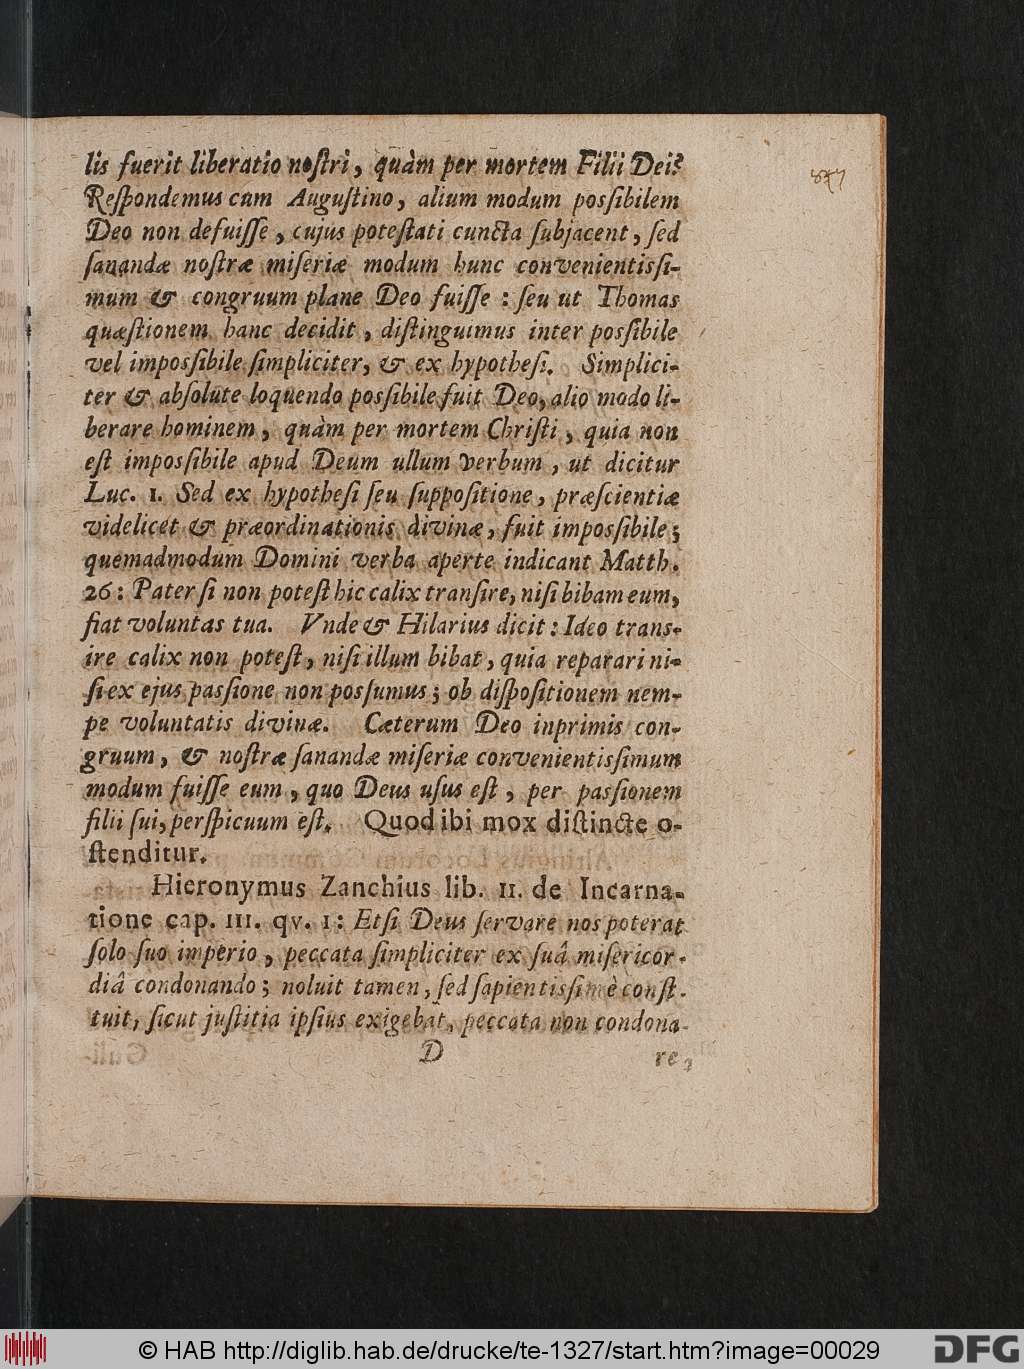 lis fuerit liberatio noſtri, quàm per mortem Filii Dei?
Reſpondemus cum Auguſtino, alium modum posſibilem
Deo non defuiſſe, cujus poteſtati cuncta ſubjacent, ſed
ſanandæ noſtræ miſeriæ modum hunc convenientisſi-
mum & congruum plane Deo fuiſſe : ſeu ut Thomas
quæſtionem hanc decidit, diſtinguimus inter posſibile
vel imposſibile ſimpliciter, & ex hypotheſi. Simplici-
ter & abſolute loquendo posſibile fuit Deo, alio modo li-
berare hominem, quàm per mortem Chriſti, quia non
eſt imposſibile apud Deum ullum verbum, ut dicitur
Luc. 1. Sed ex hypotheſi ſeu ſuppoſitione, præſcientiæ
videlicet & præordinationis divinæ, fuit imposſibile;
quemadmodum Domini verba aperte indicant Matth.
26: Pater ſi non poteſt hic calix tranſire, niſi bibam eum,
fiat voluntas tua. Vnde & Hilarius dicit: Ideo trans-
ire calix non poteſt, niſi illum bibat, quia reparari ni-
ſi ex ejus pasſione non posſumus; ob diſpoſitionem nem-
pe voluntatis divinæ. Cæterum Deo inprimis con-
gruum, & noſtræ ſanandæ miſeriæ convenientisſimum
modum fuiſſe eum, quo Deus uſus eſt, per pasſionem
filii ſui, perſpicuum eſt. Quod ibi mox diſtincte o-
ſtenditur.
Hieronymus Zanchius lib. II. de Incarna-
tione cap. III. qv. 1: Etſi Deus ſervare nos poterat
ſolo ſuo imperio, peccata ſimpliciter ex ſuâ miſericor-
diâ condonando; noluit tamen, ſed ſapientisſimè conſt-
tuit, ſicut juſtitia ipſius exigebat, peccata non condona-
D
re,
© HAB http://diglib.hab.de/drucke/te-1327/start.htm?image=00029
DFG